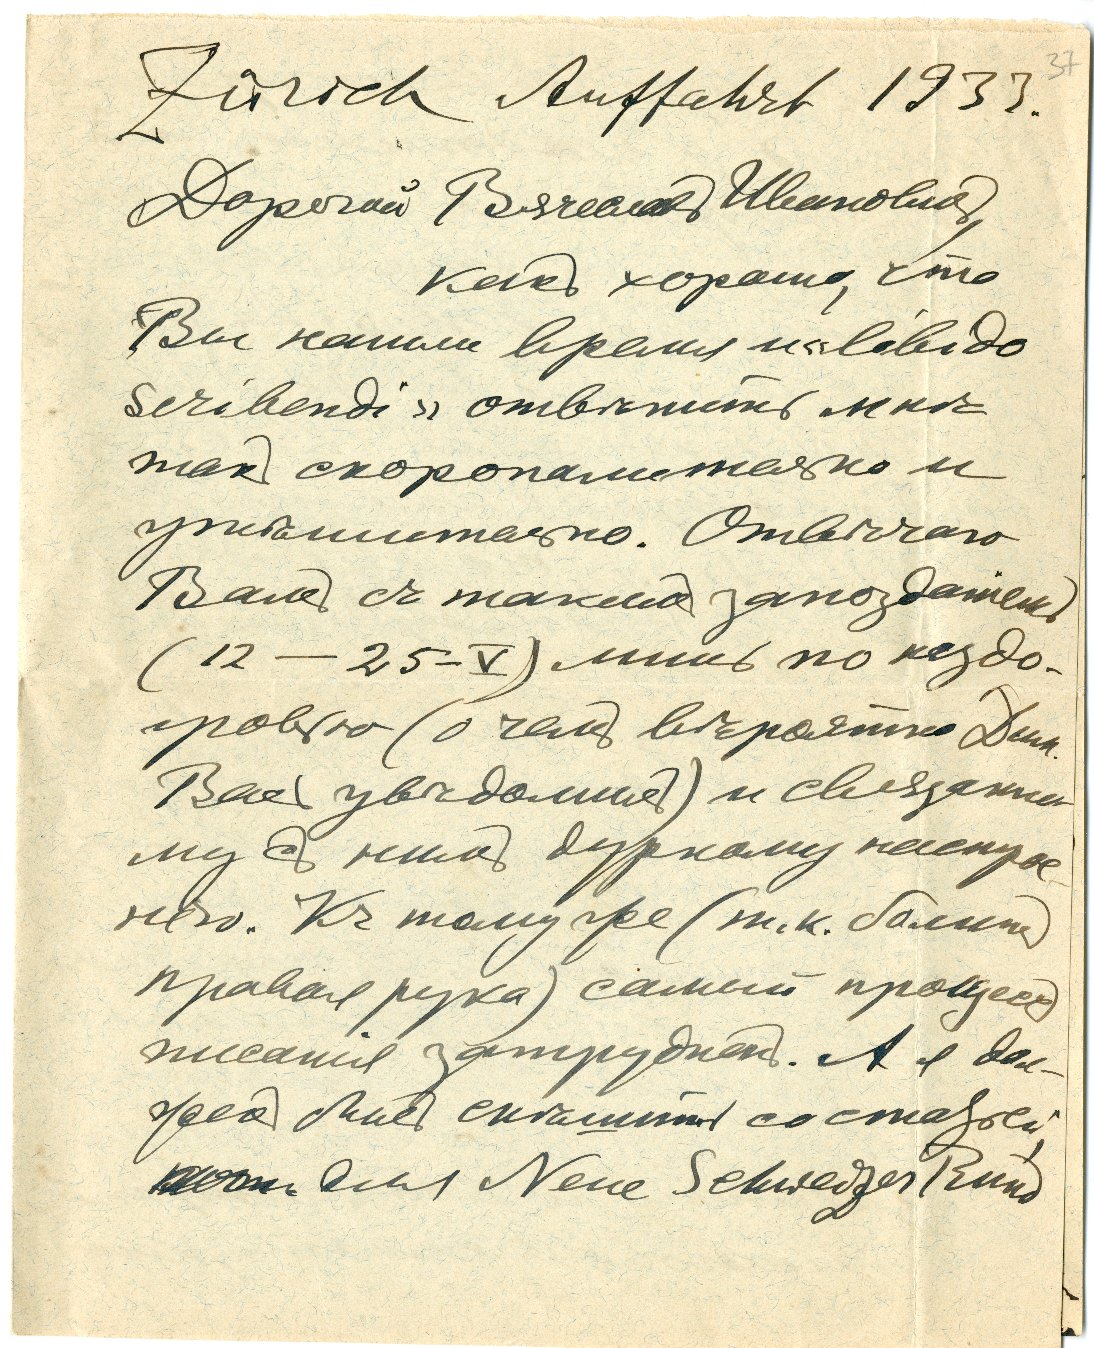 37
Zürich Auffahrt 1933.
Дорогой Вячеславъ Ивановичъ,
какъ хорошо, что
Вы нашли время и «libido
scribendi» отвѣтить мнѣ
такъ скоропалительно и
утѣшительно. Отвѣчаю
Вамъ съ такимъ запозданіемъ
(12 — 25-V) лишь по нездо-
ровью (о чемъ вѣроятно Дим.
Васъ увѣдомилъ) и связанно-
му съ нимъ дурному настрое-
нію. Къ тому же (т.к. болитъ
правая рука) самый процессъ
писанія затрудненъ. А я дол-
женъ былъ спѣшить со статьей,
для Neue Schweizer Rund